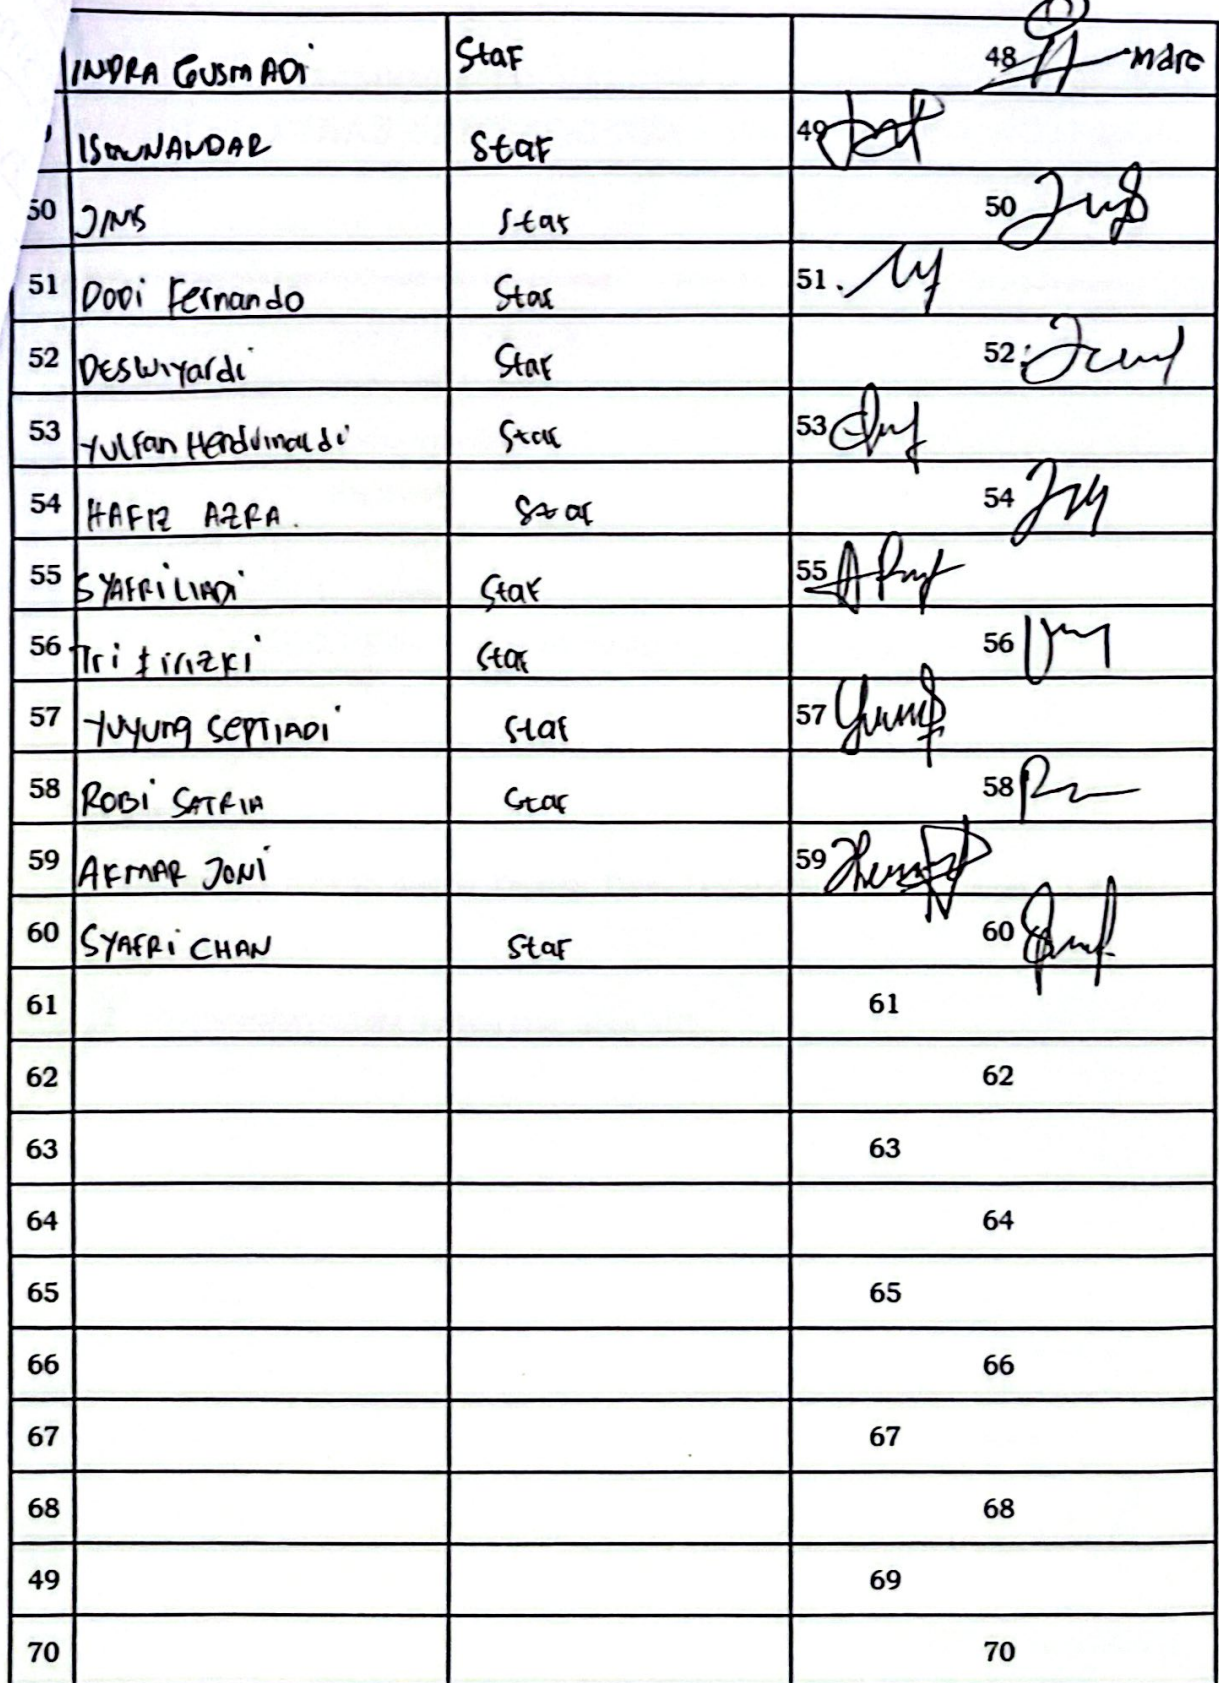 INDRA GUSMADi Staf 48
ISKUNANDAR Staf 49
50 JNIS Staf 50
51 DODi Fernando Staf 51.
52 DESWiYardi Staf 52.
53 Yulfan Herdvinaldi Staf 53
54 HAFIZ AZRA. Staf 54
55 SYAFRiLIADi Staf 55
56 Tri firizki Staf 56
57 Yuyung SEPTIADi Staf 57
58 ROBi SATRIA Staf 58
59 AKMAR JONi 59
60 SYAFRi CHAN Staf 60
61 61
62 62
63 63
64 64
65 65
66 66
67 67
68 68
49 69
70 70